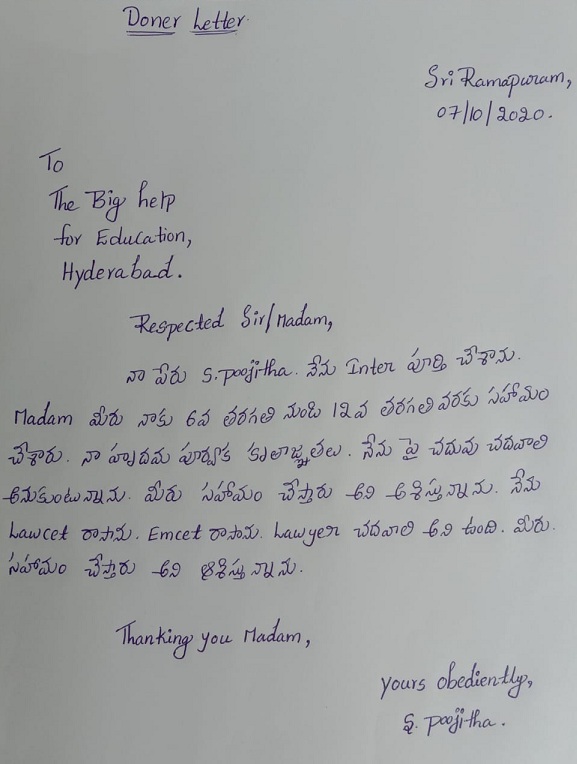 Doner Letter
Sri Ramapuram,
07/10/2020.
To
The Big help
for Education,
Hyderabad.
Respected Sir/Madam,
నా పేరు S.poojitha. నేను Inter పూర్తి చేశాను.
Madam మీరు నాకు 6వ తరగతి నుండి 12వ తరగతి వరకు సహాయం
చేశారు. నా హృదయ పూర్వక కృతాజ్ఞతలు. నేను పై చదువు చదవాలి
అనుకుంటున్నాను. మీరు సహాయం చేస్తారు అని ఆశిస్తున్నాను. నేను
Lawcet రాసాను. Emcet రాసాను. Lawyer చదవాలి అని ఉంది. మీరు.
సహాయం చేస్తారు అని ఆశిస్తున్నాను.
Thanking you Madam,
yours obediently,
S. poojitha.